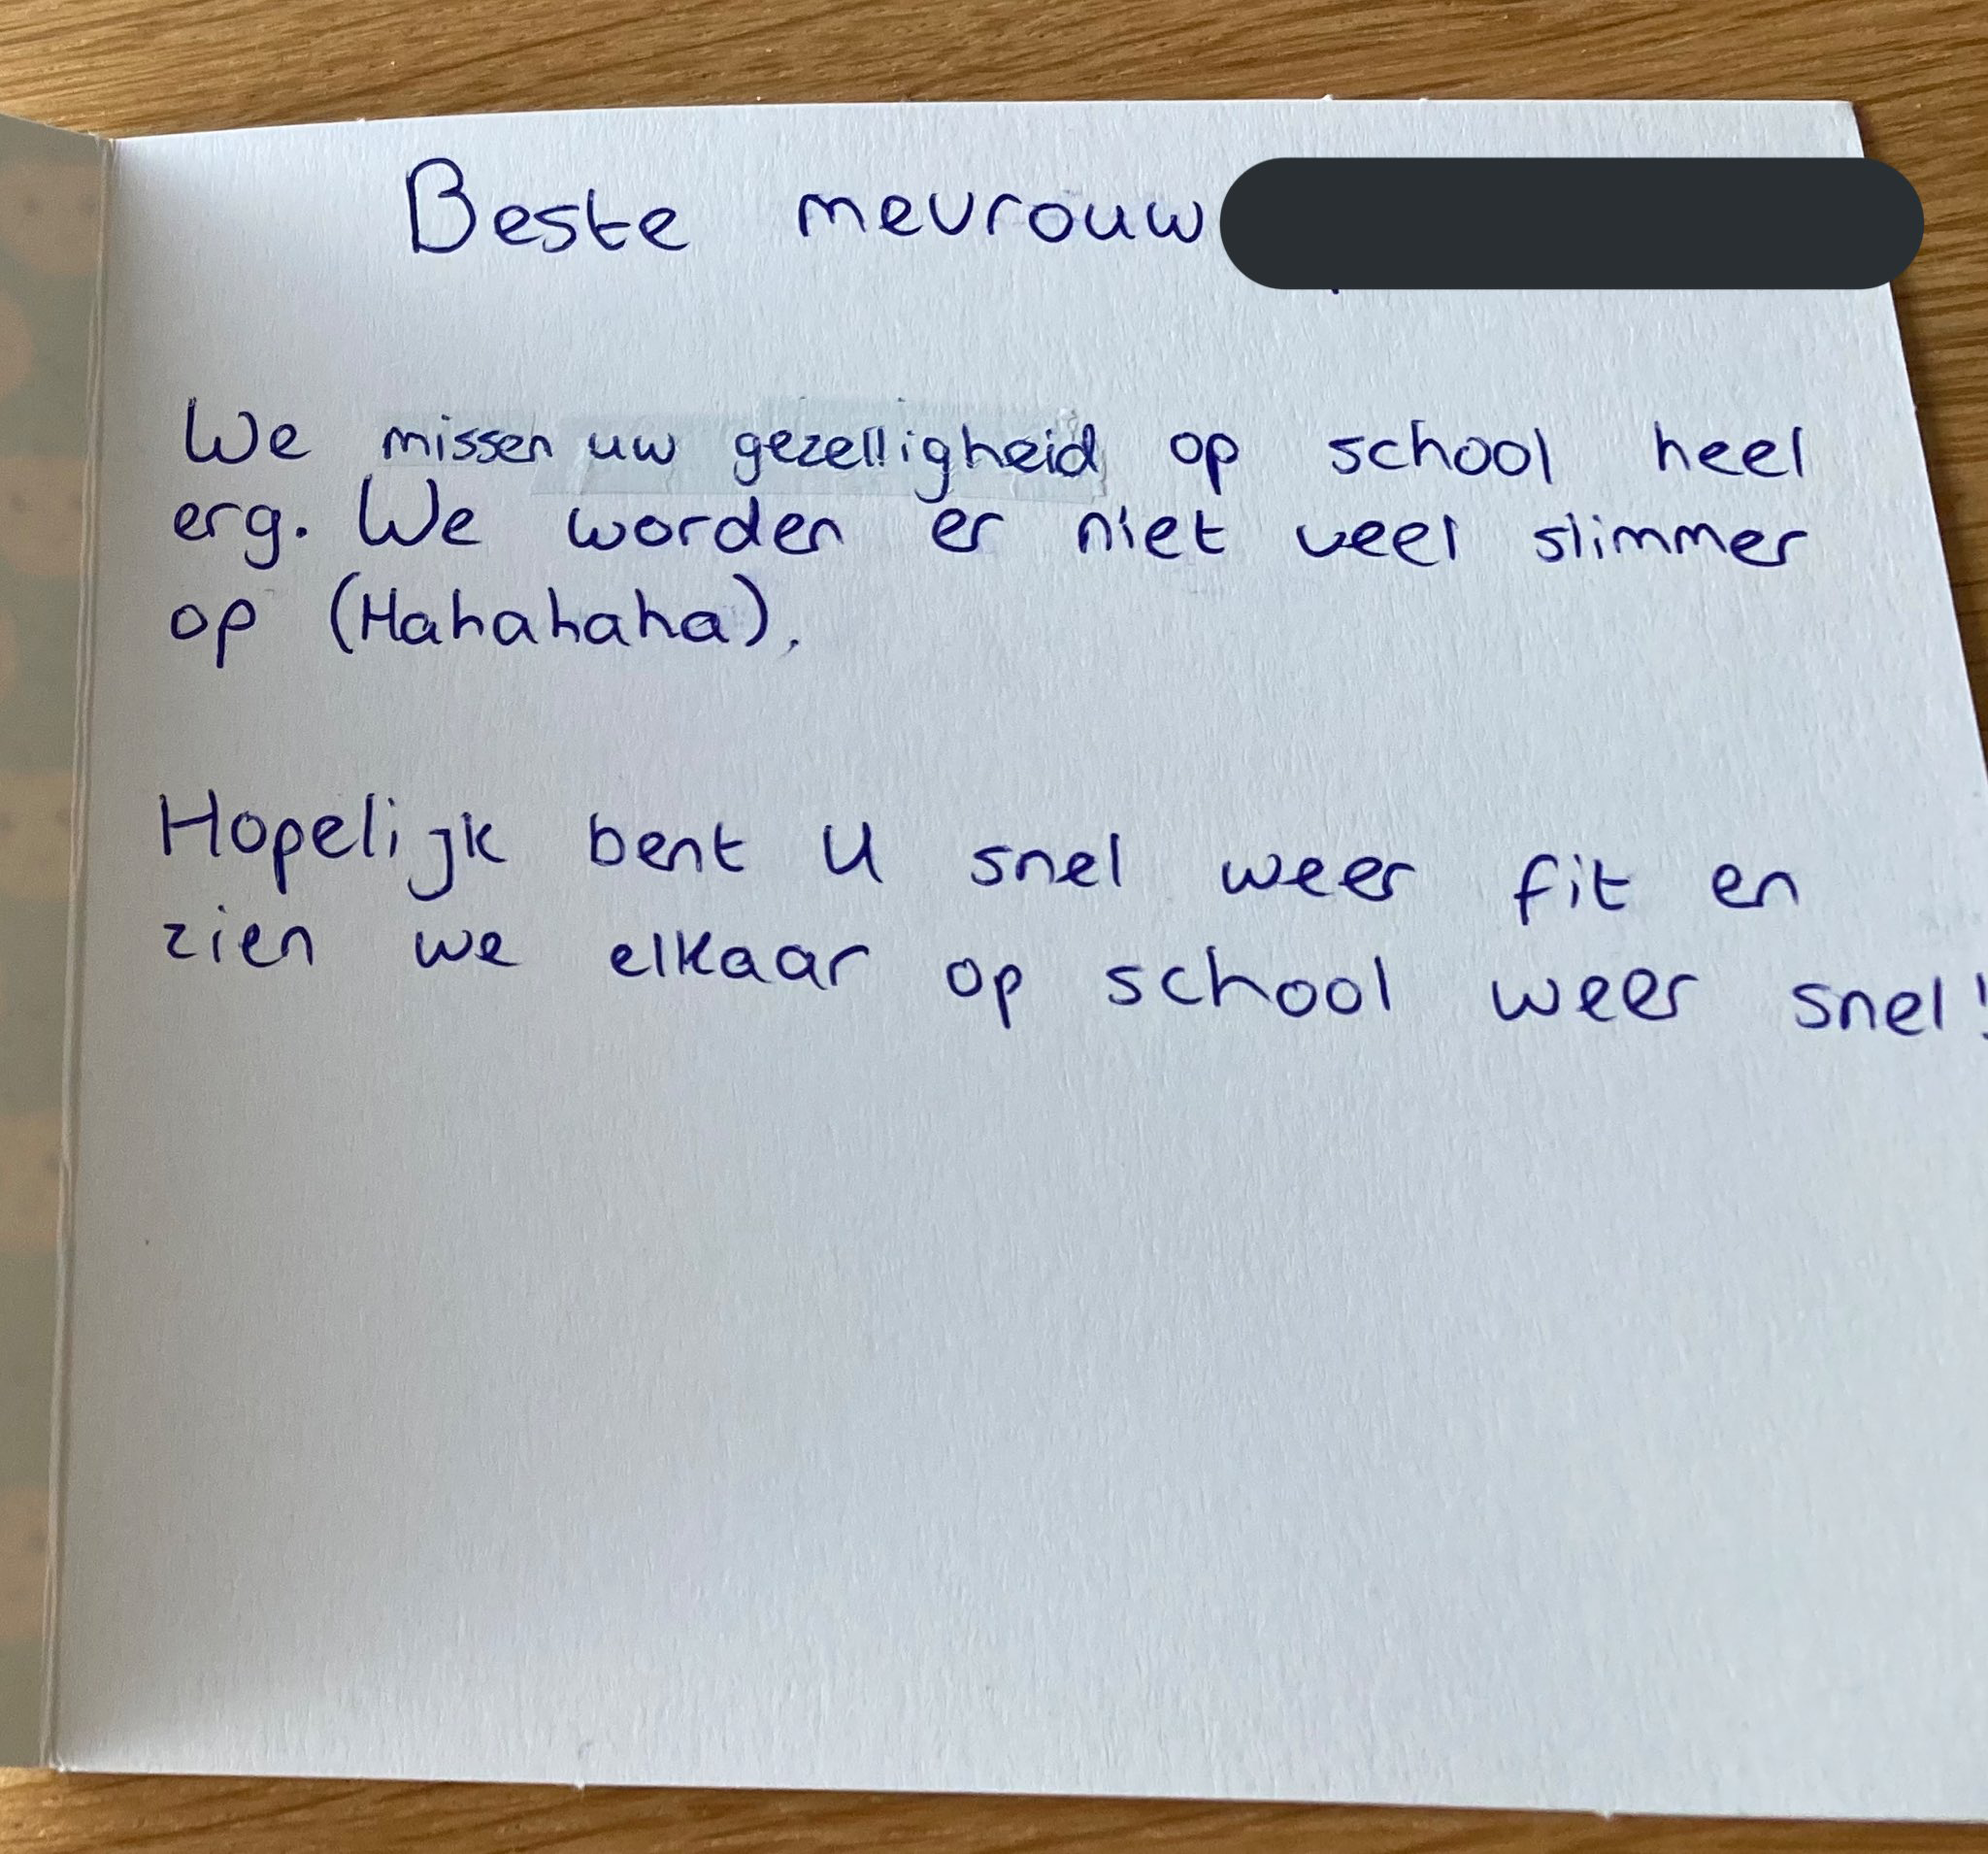 Beste mevrouw
We missen uw gezelligheid op school heel
erg. We worden er niet veel slimmer
op (Hahahaha).
Hopelijk bent u snel weer fit en
zien we elkaar op school weer snel!